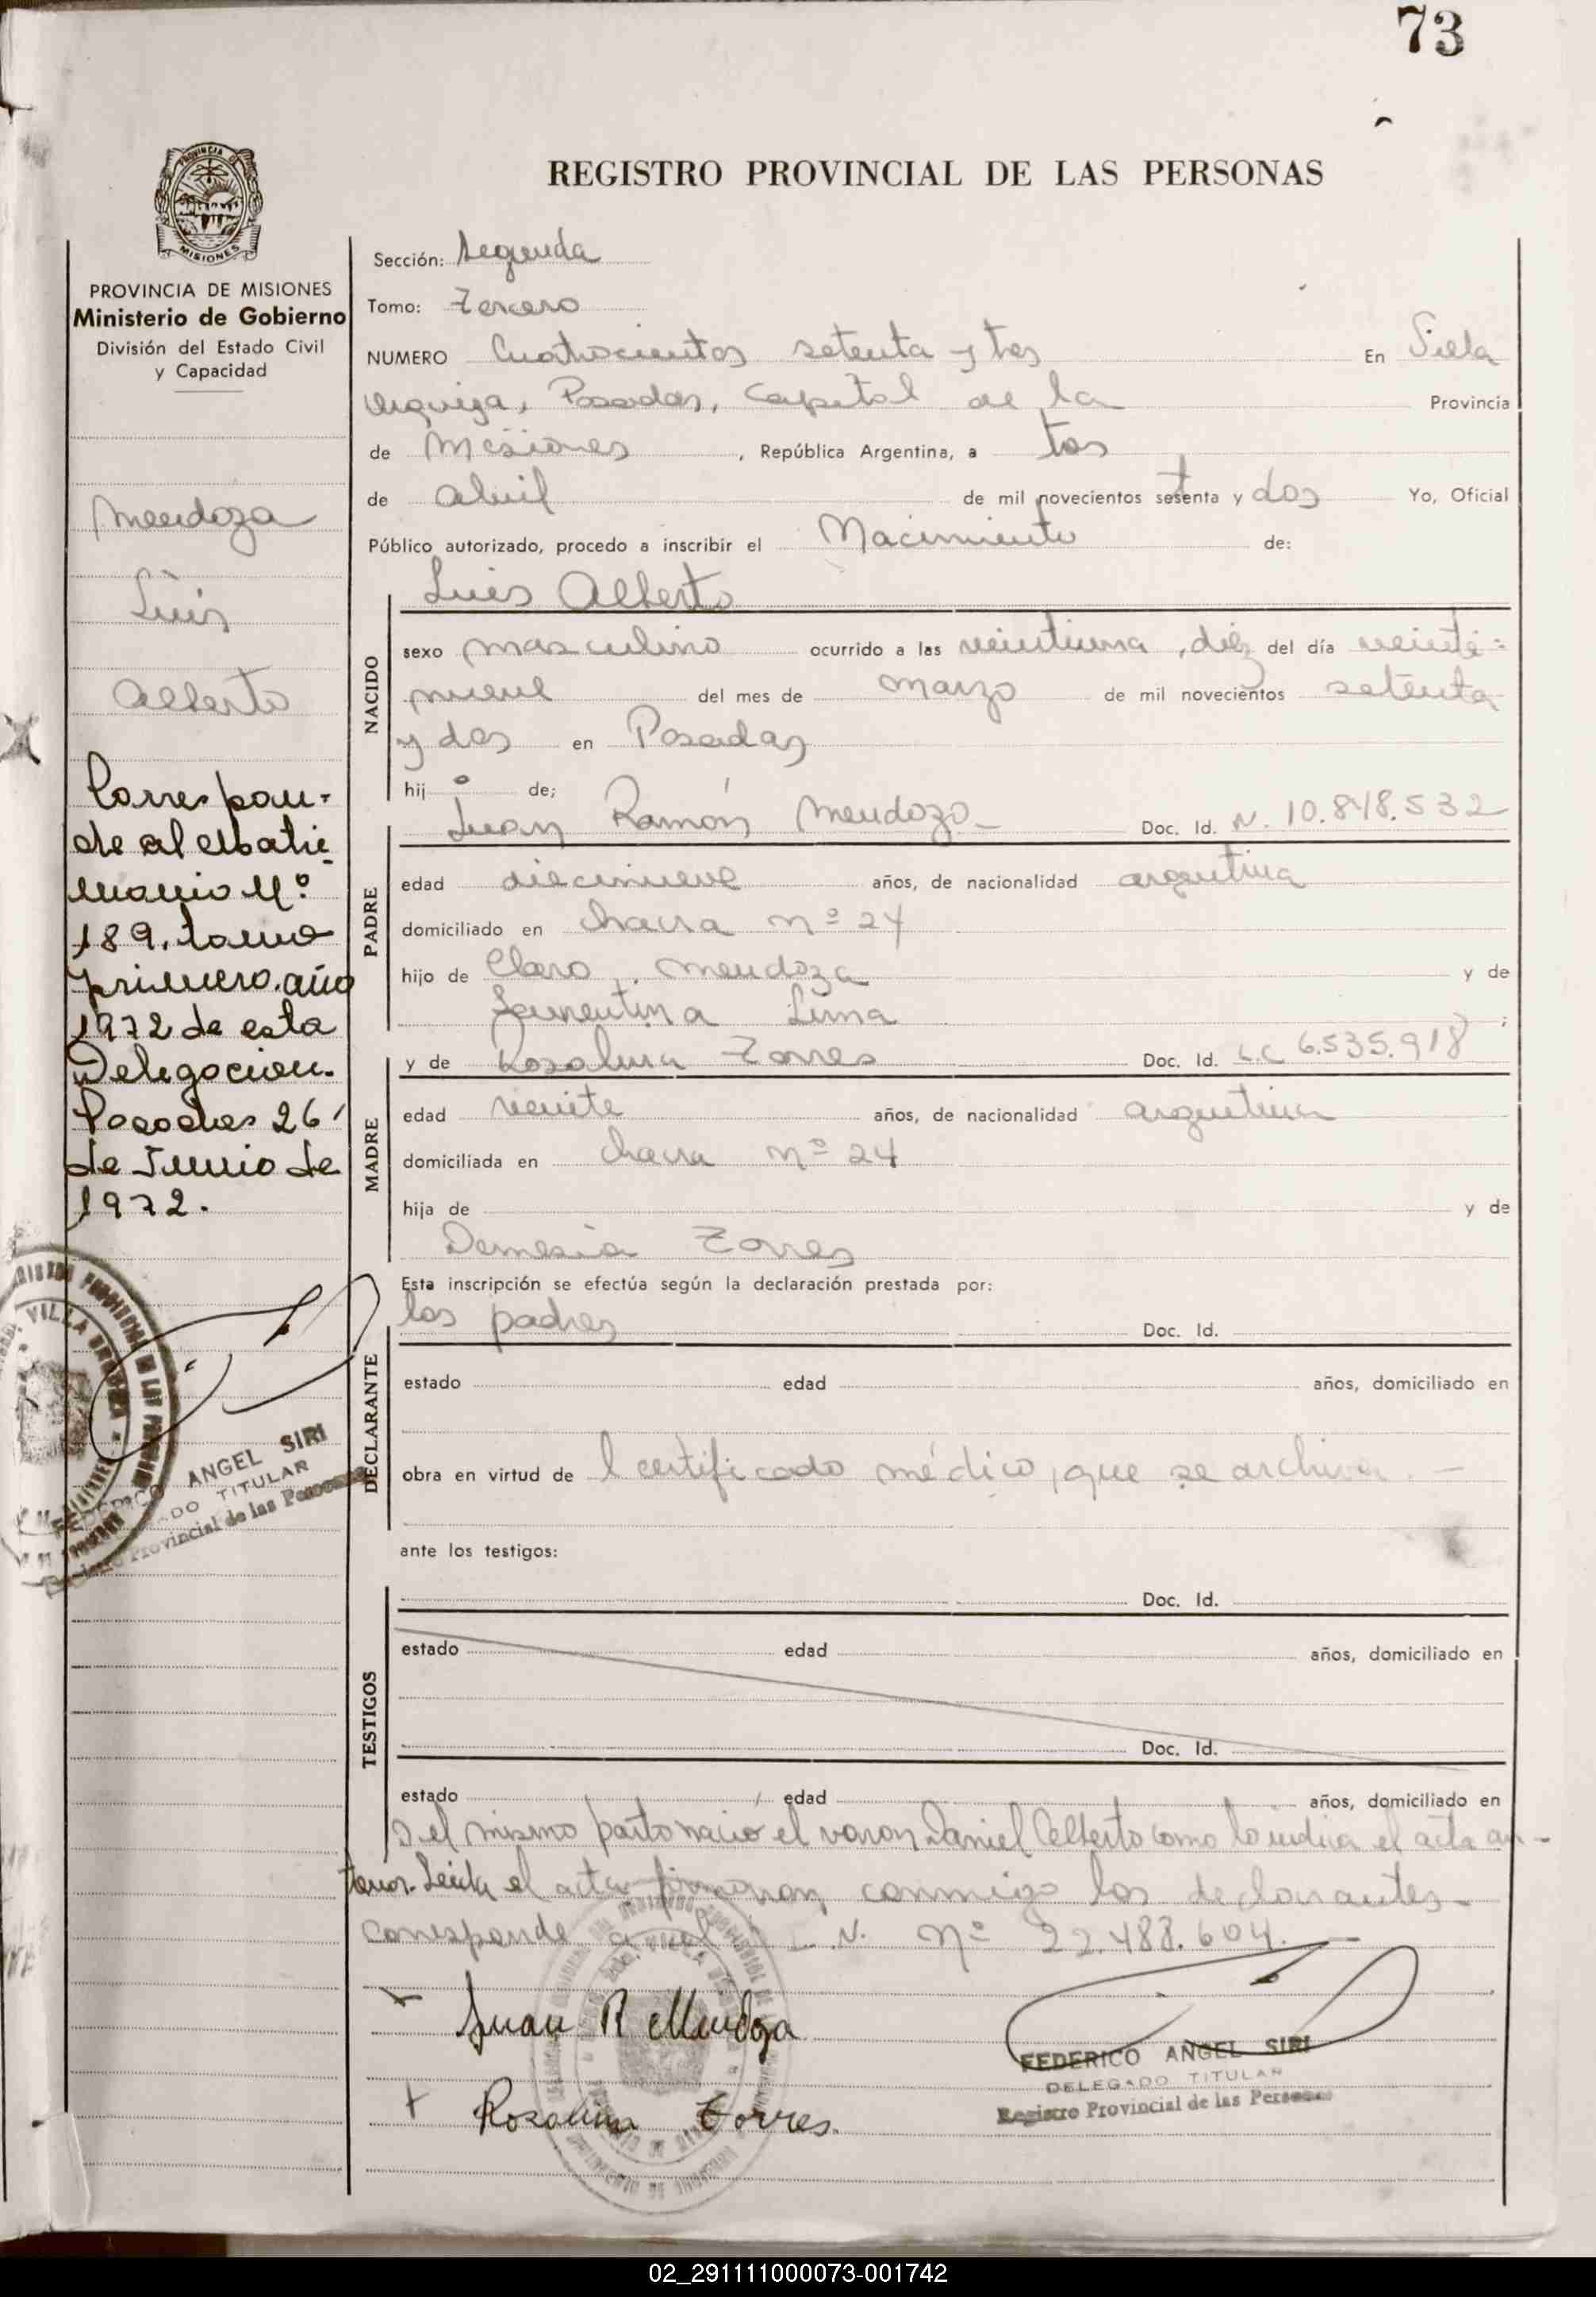 73
REGISTRO PROVINCIAL DE LAS PERSONAS
PROVINCIA DE MISIONES
Ministerio de Gobierno
División del Estado Civil
y Capacidad
Mendoza
Luis
Alberto
Correspon-
de al Matri-
monio Nº
189, tomo
primero, año
1972 de esta
Delegacion.
Posadas 26
de Junio de
1972.
FEDERICO ANGEL SIRI
DELEGADO TITULAR
Registro Provincial de las Personas
Sección: Segunda
Tomo: Tercero
NUMERO Cuatrocientos setenta y tres En Villa
Urquiza, Posadas, Capital de la Provincia
de Misiones, República Argentina, a tres
de abril de mil novecientos setenta y dos Yo, Oficial
Público autorizado, procedo a inscribir el Nacimiento de:
Luis Alberto
NACIDO
sexo masculino ocurrido a las veintiuna, diez del día veinti-
nueve del mes de marzo de mil novecientos setenta
y dos en Posadas
hijo de;
PADRE
Juan Ramón Mendoza Doc. Id. N. 10.848.532
edad diecinueve años, de nacionalidad argentina
domiciliado en chacra nº 24
hijo de Claro Mendoza y de
Laurentina Lima ;
MADRE
y de Rosalina Torres Doc. Id. L.C 6.535.918
edad veinte años, de nacionalidad argentina
domiciliada en chacra nº 24
hija de y de
Demesia Torres
Esta inscripción se efectúa según la declaración prestada por:
DECLARANTE
los padres Doc. Id.
estado edad años, domiciliado en
obra en virtud de l certificado médico, que se archiva. -
ante los testigos:
TESTIGOS
Doc. Id.
estado edad años, domiciliado en
Doc. Id.
estado edad años, domiciliado en
el mismo parto nació el varon Daniel Alberto como lo indica el acta an-
terior. Leida el acta firmaron conmigo los declarantes-
corresponde N. nº 22.488.604. -
Juan R Mendoza
Rosalina Torres.
FEDERICO ANGEL SIRI
DELEGADO TITULAR
Registro Provincial de las Personas
02_291111000073-001742